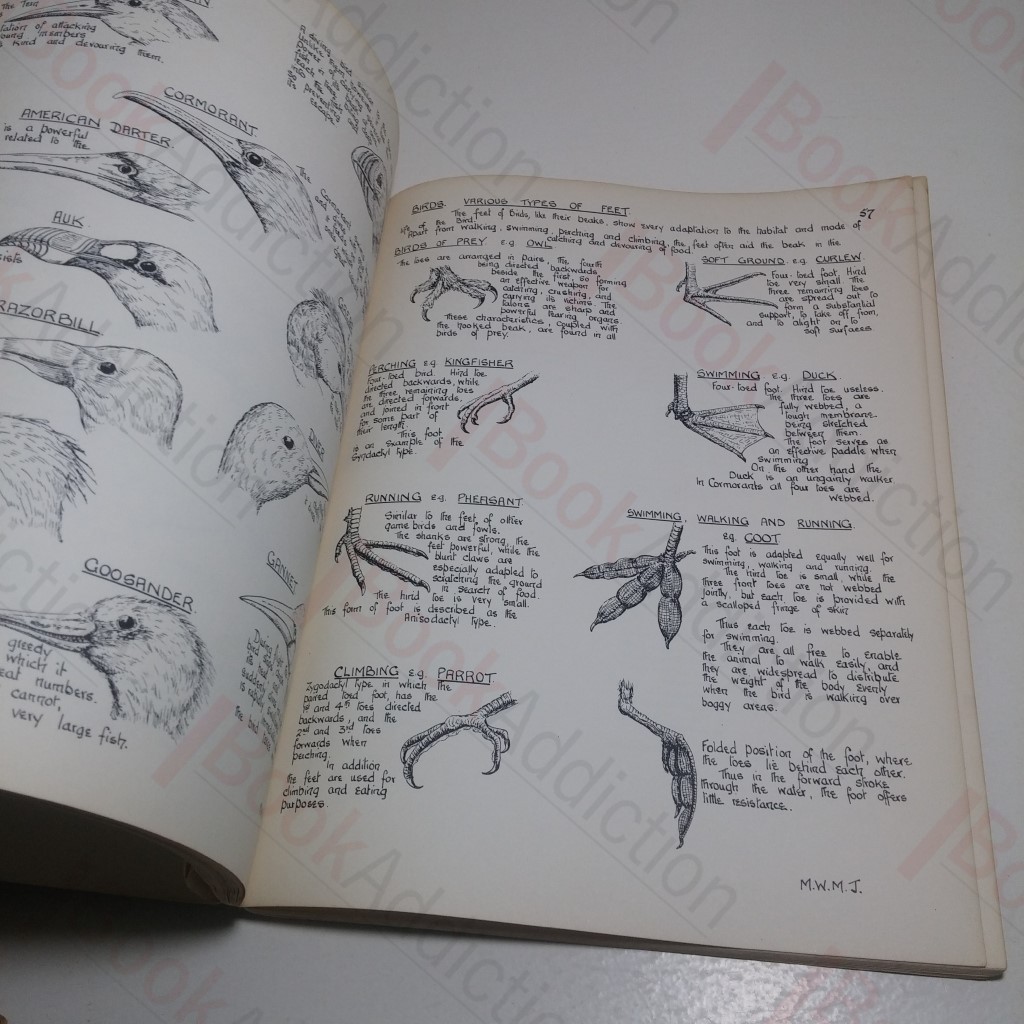 The Text
lation of attacking
young members
kind and devouring them.
CORMORANT
AMERICAN DARTER.
is a powerful
related to the
The Cormorant
AUK
RAZORBILL
GOOSANDER
GANNET
greedy
which it
eat numbers.
cannot,
very large fish.
57
BIRDS. VARIOUS TYPES OF FEET
The feet of Birds, like their beaks, show every adaptation to the habitat and mode of
life of the Bird.
Apart from walking, swimming, perching and climbing, the feet often aid the beak in the
catching and devouring of food.
BIRDS OF PREY e.g. OWL
The toes are arranged in pairs, the fourth
being directed backwards
beside the first, so forming
an effective weapon for
catching, crushing, and
carrying its victims. The
talons are sharp and
powerful tearing organs
These characteristics, coupled with
the hooked beak, are found in all
birds of prey.
SOFT GROUND. e.g. CURLEW.
Four-toed foot, Hind
toe very small. The
three remaining toes
are spread out to
form a substantial
support, to take off from,
and to alight on to
soft surfaces
PERCHING e.g. KINGFISHER
Four-toed bird. Hind toe
directed backwards, while
the three remaining toes
are directed forwards,
and joined in front
for some part of
their length.
This foot
is an example of the
Syndactyl type.
SWIMMING e.g. DUCK.
Four-toed foot. Hind toe useless.
The three toes are
fully webbed, a
tough membrane
being stretched
between them.
The foot serves as
an effective paddle when
swimming
On the other hand the
Duck is an ungainly walker.
In Cormorants all four toes are
webbed.
RUNNING e.g. PHEASANT.
Similar to the feet of other
game birds and fowls.
The shanks are strong, the
feet powerful, while the
blunt claws are
especially adapted to
scratching the ground
in search of food.
The hind toe is very small.
This form of foot is described as the
Anisodactyl type.
SWIMMING, WALKING AND RUNNING.
e.g. COOT
This foot is adapted equally well for
swimming, walking and running.
The hind toe is small, while the
three front toes are not webbed
jointly, but each toe is provided with
a scalloped fringe of skin
Thus each toe is webbed separately
for swimming.
They are all free to enable
the animal to walk easily, and
they are widespread to distribute
the weight of the body evenly
when the bird is walking over
boggy areas.
CLIMBING e.g. PARROT.
Zygodactyl type in which the
paired toed foot, has the
1st and 4th toes directed
backwards, and the
2nd and 3rd toes
forwards when
perching.
In addition
the feet are used for
climbing and eating
purposes.
Folded position of the foot, where
the toes lie behind each other.
Thus in the forward stroke
through the water, the foot offers
little resistance.
M.W.M.J.
BookAddiction